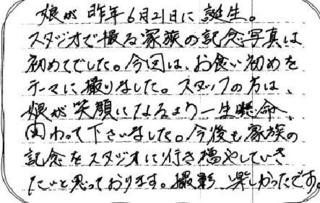 娘が昨年6月21日に誕生。
スタジオで撮る家族の記念写真は
初めてでした。今回は、お食い初めを
テーマに撮りました。スタッフの方は、
娘が笑顔になるよう一生懸命、
関わって下さいました。今後も家族の
記念をスタジオに行き増やしていき
たいと思っております。撮影 楽しかったです。